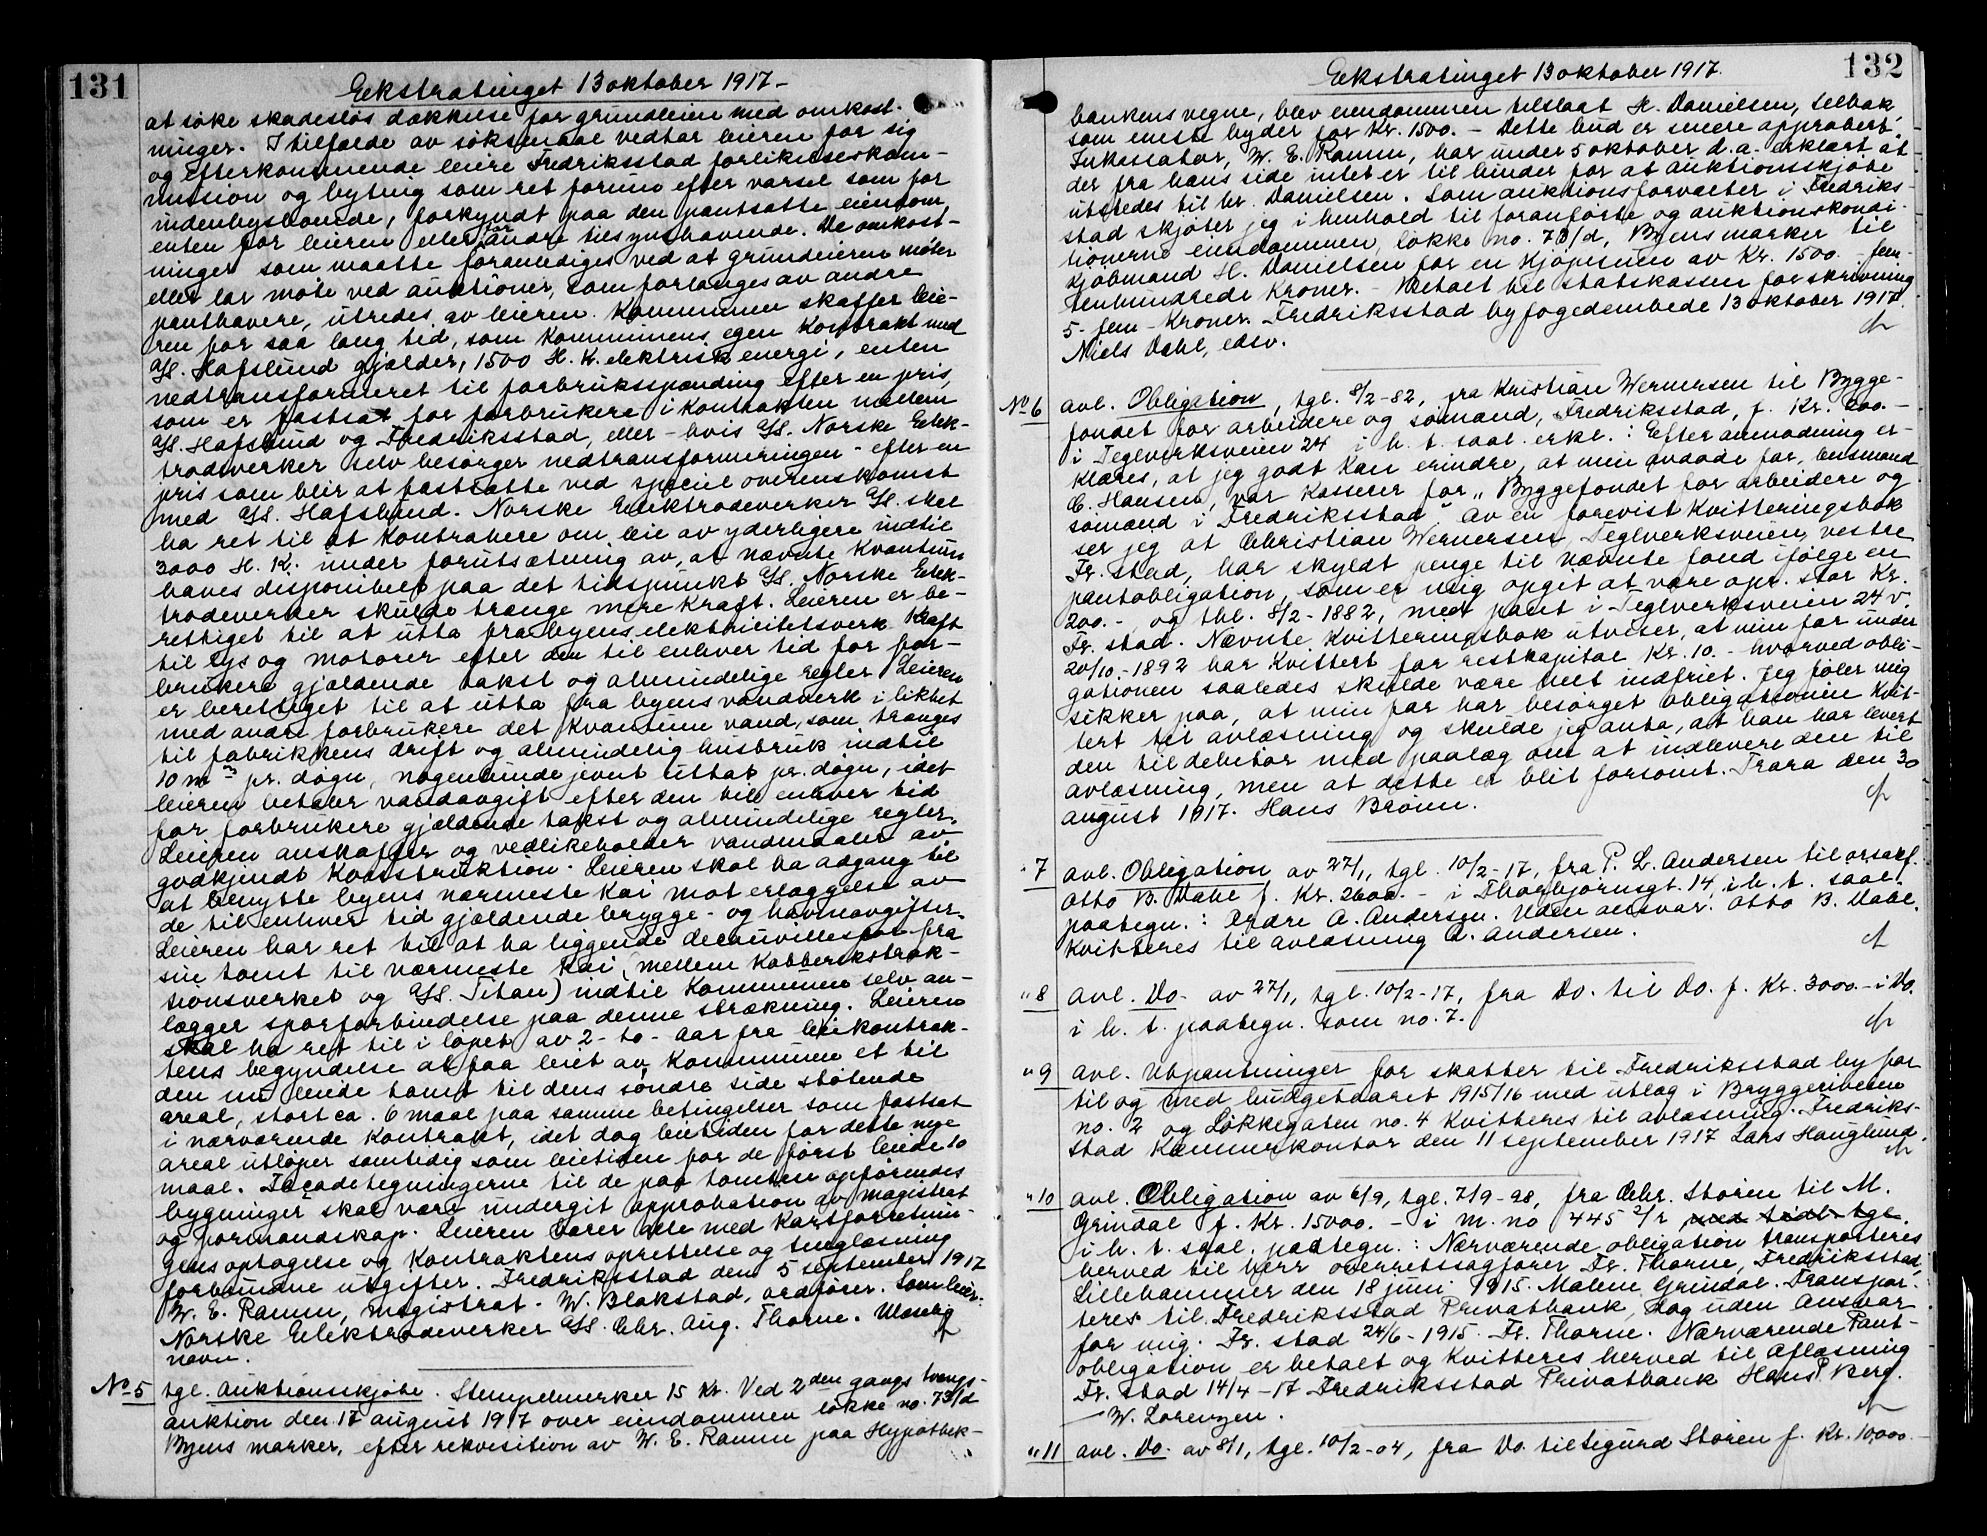 131
Eekstratinget 13 oktober 1917 -
at søke skadesløs dækkelse for grundleien med omkost-
ninger. I tilfælde av søksmaal vedtar leieren for sig
og efterkommende leiere Fredriksstad forlikelseskom-
mission og byting som ret forum efter varsel som for
indenbysboende, forkyndt paa den pantsatte eiendom,
enten for leieren eller for andre tilsynshavende. De omkost-
ninger som maatte foranlediges ved at grundeieren møter
eller lar møte ved auktioner, som forlanges av andre
panthavere, utredes av leieren. Kommunen skaffer leie-
ren for saa lang tid, som kommunens egen kontrakt med
A/S. Hafslund gjælder, 1500 H. K. elektrisk energi, enten
nedtransformeret til forbruksspænding efter en pris,
som er fastsat for forbrukere i kontrakten mellem
A/S. Hafslund og Fredriksstad, eller - hvis A/S. Norske Elek-
trodeverker selv besørger nedtransformeringen - efter en
pris som blir at fastsætte ved speciel overenskomst
med A/S. Hafslund. Norske Elektrodeverker A/S. skal
ha ret til at kontrahere om leie av yderligere indtil
3000 H. K. under forutsætning av, at nævnte kvantum
haves disponibelt paa det tidspunkt A/S. Norske Elek-
trodeverker skulde trænge mere kraft. Leieren er be-
rettiget til at utta fra byens elektricitetsverk kraft
til lys og motorer efter den til enhver tid for for-
brukere gjældende takst og almindelige regler. Leieren
er berettiget til at utta fra byens vandverk i likhet
med andre forbrukere det kvantum vand, som trænges
til fabrikkens drift og almindelig husbruk indtil
10 m3 pr. døgn, nogenlunde jevnt uttat pr. døgn, idet
leieren betaler vandavgift efter den til enhver tid
for forbrukere gjældende takst og almindelige regler.
Leieren anskaffer og vedlikeholder vandmaaler av
godkjendt konstruktion. Leieren skal ha adgang til
at benytte byens nærmeste kai mot erlæggelse av
de til enhver tid gjældende brygge- og havneavgifter.
Leieren har ret til at ha liggende decauvillespor fra
sin tomt til nærmeste kai (mellem Kobberekstrak-
sionsverket og A/S. Titan) indtil kommunen selv an-
lægger sporforbindelse paa denne strækning. Leieren
skal ha ret til i løpet av 2 - to - aar fra leiekontrak-
tens begyndelse at faa leiet av kommunen et til
den nu leiede tomt til dens søndre side støtende
areal, stort ca. 6 maal paa samme betingelser som fastsat
i nærværende kontrakt, idet dog leietiden for dette nye
areal utløper samtidig som leietiden for de først leiede 10
maal. Façadetegningerne til de paa tomten opførendes
bygninger skal være undergit approbation av magistrat
og formandskap. Leieren bærer alle med kartforretnin-
gens optagelse og kontraktens oprettelse og tinglæsning
forbundne utgifter. Fredriksstad den 5 september 1917
W. E. Ramm, magistrat. W. Blakstad, ordfører. Som leier:
Norske Elektrodeverker A/S. Chr. Aug. Thorne.
navn.
No 5 tgl. Auktionsskjøte. Stempelmerker 15 Kr. Ved 2den gangs tvangs-
auktion den 17 august 1917 over eiendommen løkke no. 73/d
Byens marker, efter rekvisition av W. E. Ramm paa Hypothek-
132
Eekstratinget 13 oktober 1917.
bankens vegne, blev eiendommen tilslaat H. Danielsen, Selbak
som eneste byder for Kr. 1500. - Dette bud er senere approbert.
Inkassator, W. E. Ramm, har under 5 oktober d.a. erklært at
der fra hans side intet er til hinder for at auktionsskjøte
utstedes til hr. Danielsen. Som auktionsforvalter i Fredriks-
stad skjøter jeg i henhold til foranførte og auktionskondi-
tionerne eiendommen, løkke no. 73/d, Byens marker til
kjøbmand H. Danielsen for en kjøpesum av Kr. 1500 - fem-
tenhundrede Kroner. - Betalt til statskassen for skrivning
5 - fem - Kroner. Fredriksstad byfogedembede 13 oktober 1917.
Niels Dahl, edsv.
No 6 avl. Obligation, tgl. 8/2-82, fra Kristian Wernersen til Bygge-
fondet for arbeidere og sømænd, Fredriksstad, f. Kr. 200. -
i Teglverksveien 24 i h. t. saal. erkl.: Efter anmodning er-
klæres, at jeg godt kan erindre, at min avdøde far, lensmand
C. Hansen, var kasserer for "Byggefondet for arbeidere og
sømænd i Fredriksstad" Av en forevist Kvitteringsbok
ser jeg at Christian Wernersen, Teglverksveien, vestre
Fr.stad, har skyldt penge til nævnte fond ifølge en
pantobligation, som er mig opget at være opr. stor Kr.
200. -, og tbl. 8/2-1882, med pant i Teglverksveien 24 v.
Fr. stad. Nævnte Kvitteringsbok utviser, at min far under
20/10-1892 har Kvittert for restkapital Kr. 10. - hvorved obli-
gationen saaledes skulde være helt indfriet. Jeg føler mig
sikker paa, at min far har besørget obligationen Kvit-
tert til avlæsning og skulde jeg anta, at han har levert
den til debitor med paalæg om at indlevere den til
avlæsning, men at dette er blit forsømt. Trara den 30
august 1917. Hans Brønn.
" 7 avl. Obligation av 27/1, tgl. 10/2-17, fra P. L. Andersen til orsakf.
Otto B. Vahl f. Kr. 2600. - i Thorbjørnsgt. 14, i h. t. saal.
paategn.: Ordre A. Andersen. Uden ansvar. Otto B. Vahl.
Kvitteres til avlæsning A. Andersen.
" 8 avl. Do. av 27/1, tgl. 10/2-17, fra Do. til Do. f. Kr. 3000. - i Do.
i h. t. paategn. som no. 7.
" 9 avl. Utpantninger for skatter til Fredriksstad by for
til og med budgetaaret 1915/16 med utlæg i Bryggeriveien
no. 2 og Løkkegaten no. 4 Kvitteres til avlæsning. Fredriks-
stad Kæmnerkontor den 11 september 1917 Lars Hauglund.
" 10 avl. Obligation av 6/9, tgl. 7/9-98, fra Chr. Støren til M.
Grindal f. Kr. 15000. - i m. no 445 2/2
i h. t. saal. paategn.: Nærværende obligation transporteres
herved til herr overretssagfører Fr. Thorne, Fredriksstad,
Lillehammer den 18 juni 1915. Malene Grindal. Transpor-
teres til Fredriksstad Privatbank, dog uden Ansvar
for mig. Fr. stad 24/6-1915. Fr. Thorne. Nærværende Pant-
obligation er betalt og kvitteres herved til Aflæsning
Fr. stad 14/4-17 Fredriksstad Privatbank Hans P. Berg.
W. Lorenzen.
" 11 avl. Do. av 8/1, tgl. 10/2-04, fra Do. til Sigurd Støren f. Kr. 10,000. -